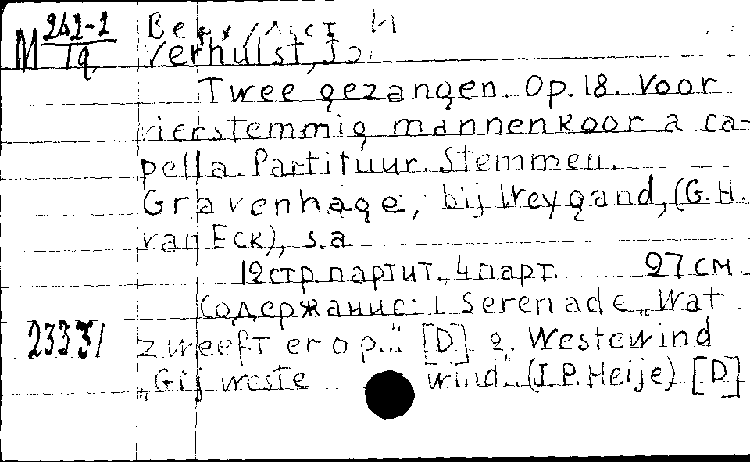 M 242-2
Tq
Verhulst, Jo.
Twee gezangen. Op. 18. Voor
vierstemmig mannenkoor a ca-
pella. Partituur. Stemmen.
Gravenhage, bij Weygand, (G.H.
van Eck), s.a
12 стр. партит., 4 парт. 27 см
Содержание: 1. Serenade „Wat
23331 zweeft er op..." [D] 2. Westewind
„Gij weste wind". (J.P. Heije) [D]